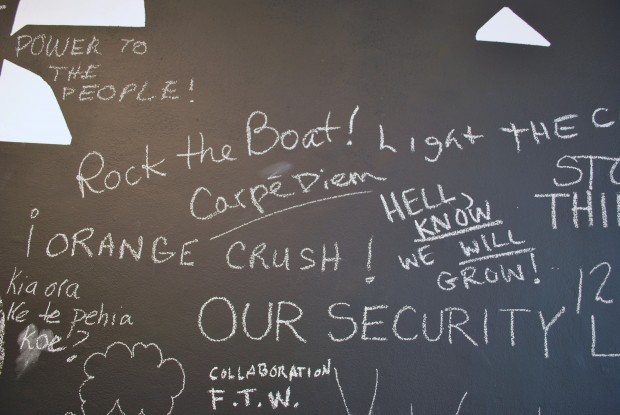 POWER TO
THE
PEOPLE!
Rock the Boat!
Light THE
Carpé Diem
¡ORANGE CRUSH!
HELL,
KNOW
WE WILL
GROW!
Kia ora
Ke te pehia
koe?
OUR SECURITY
12
COLLABORATION
F.T.W.